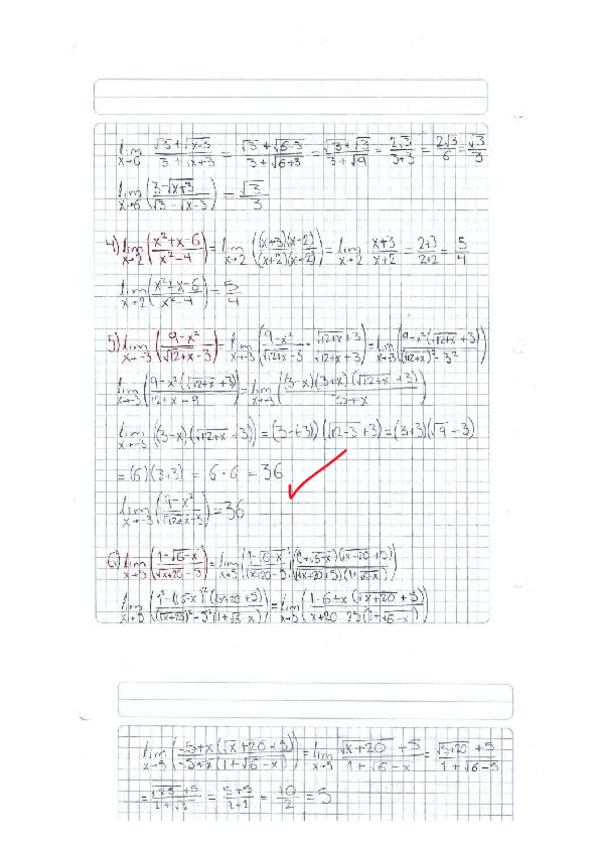 lim x→6 (√3+√x-3)/(3+√x+3) = (√3+√6-3)/(3+√6+3) = (√3+√3)/(3+√9) = 2√3/(3+3) = 2√3/6 = √3/3
lim x→6 ((3-√x+3)/(√3-√x-3)) = √3/3
4) lim x→2 ((x²+x-6)/(x²-4)) = lim x→2 ((x+3)(x-2)/(x+2)(x+2)) = lim x→2 (x+3)/(x+2) = (2+3)/(2+2) = 5/4
lim x→2 ((x²+x-6)/(x²-4)) = 5/4
5) lim x→-3 ((9-x²)/(√12+x-3)) = lim x→-3 ((9-x²)/(√12+x-3) · (√12+x+3)/(√12+x+3)) = lim x→-3 ((9-x²(√12+x+3))/((√12+x)²-3²))
lim x→-3 ((9-x²(√12+x+3))/(12+x-9)) = lim x→-3 ((3-x)(3+x)(√12+x+3)/(3+x))
lim x→-3 (3-x)(√12+x+3) = (3-(-3))(√12-3+3) = (3+3)(√9+3)
= (6)(3+3) = 6·6 = 36
lim x→-3 ((9-x²)/(√12+x-3)) = 36
6) lim x→5 ((1-√6-x)/(√x+20-5)) = lim x→5 ((1-√6-x)/(√x+20-5))((1+√6-x)(√x+20+5)/(√x+20+5)(1+√6-x))
lim x→5 ((1²-(√6-x)²(√x+20+5))/((√x+20)²-5²(1+√6-x))) = lim x→5 ((1-6+x(√x+20+5))/(x+20-25(1+√6-x)))
lim x→5 ((-5+x(√x+20+5))/(-5+x(1+√6-x))) = lim x→5 (√x+20+5)/(1+√6-x) = (√5+20+5)/(1+√6-5)
= (√25+5)/(1+√1) = (5+5)/(1+1) = 10/2 = 5